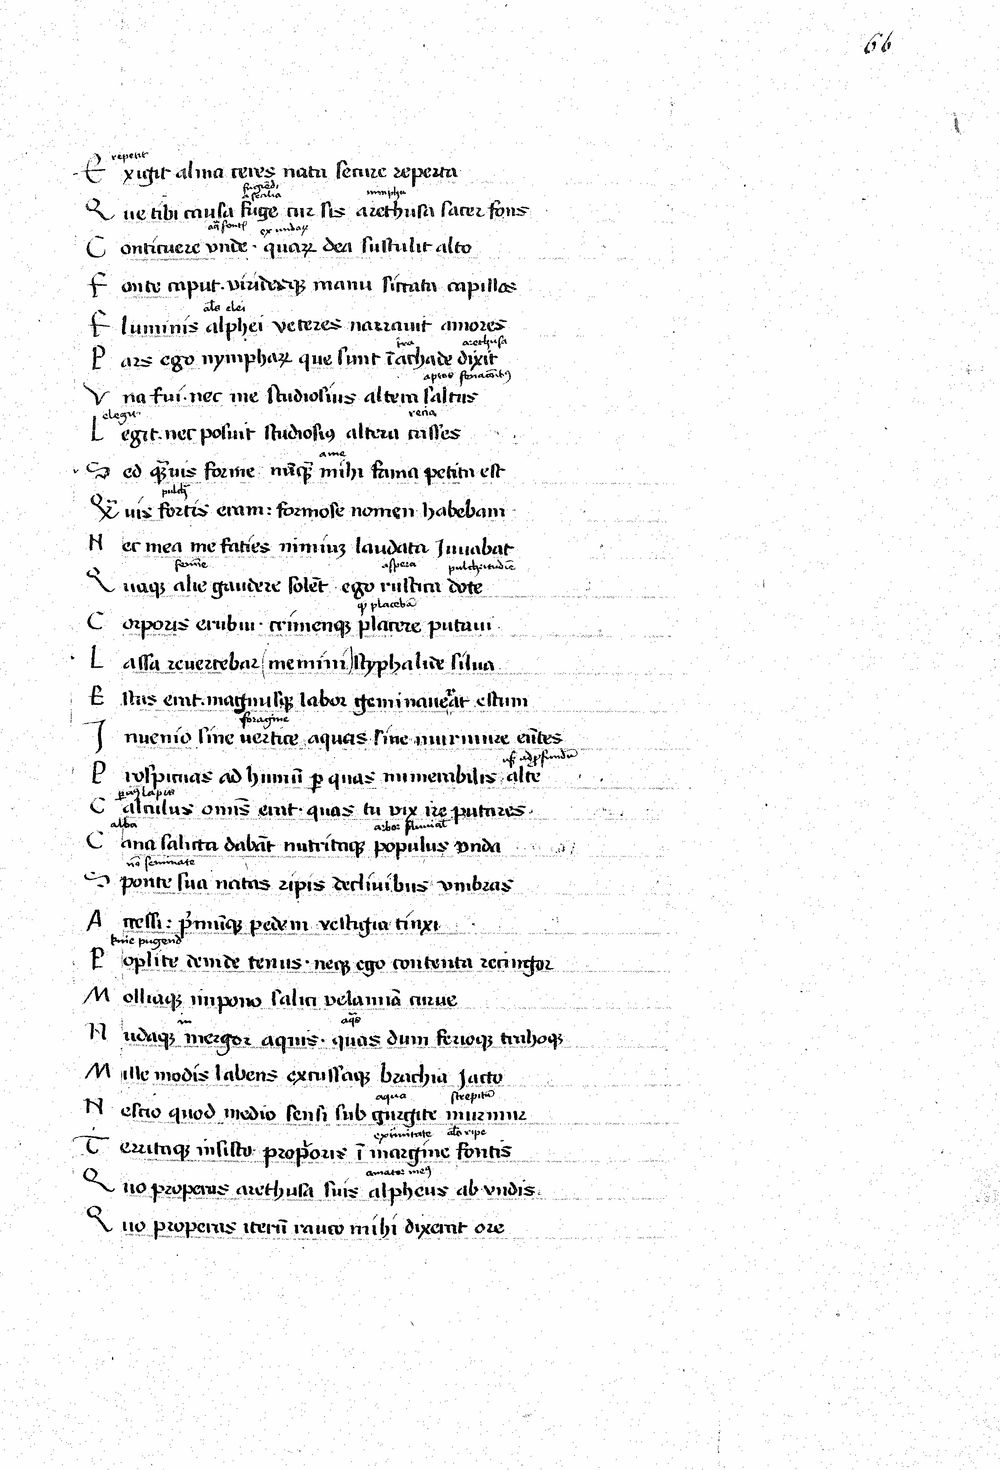 66
repetit
Exigit alma ceres nata secure reperta
fugiēdi
a sicilia nimpha
Que tibi causa fuge cur sis arethusa sacer fons
ex undaꝝ
Conticuere vnde · quaꝝ dea sustulit alto
Fonte caput · viridesqꝫ manu siccata capillos
elei
Fluminis alphei veteres narrauit amores
arethusa
Pars ego nymphaꝝ que sunt ī achade dixit
aptos
Vna fui · nec me studiosius altera saltus
elegit recia
Legit · nec posuit studiosiꝰ altera casses
a me
Sed qͣ̄uis forme nūqͣ̄ mihi fama petita est
Qͣ̄uis fortis eram : formose nomen habebam
Nec mea me faties nimiuꝫ laudata Juuabat
aspera pulchritudīe
Quaqꝫ alie gaudere solēt ego rustica dote
qͥ placebā
Corporis erubui · crimenqꝫ placere putaui
Lassa reuertebar (memini) styphalide silua
Estus erat · magnusqꝫ labor geminauerat estum
foragine
Inuenio sine vertice aquas sine murmure eūtes
Perspicuas ad humū ꝑ quas numerabilis alte
lapis
Calculus omīs erat · quas tu vix ire putares ·
alba arbor fluuial
Cana salicta dabāt nutritaqꝫ populus vnda
nō seminate
Sponte sua natas ripis decliuibus vmbras
Acressi : pͥmūqꝫ pedem vestigia tinxi
Poplite deinde tenus · neqꝫ ego contenta recingor
Molliaqꝫ impono salici velamīa curue
in aqͣs
Nudaqꝫ mergor aquis · quas dum ferioqꝫ trahoqꝫ
Mille modis labens excussaqꝫ brachia Jacto
aqua strepitū
Nescio quod medio sensi sub gurgite murmur
eximitate ripe
Territaqꝫ insisto propioris ī margine fontis
amator meꝰ
Quo properas arethusa suis alpheus ab vndis
Quo properas iterū rauco mihi dixerat ore